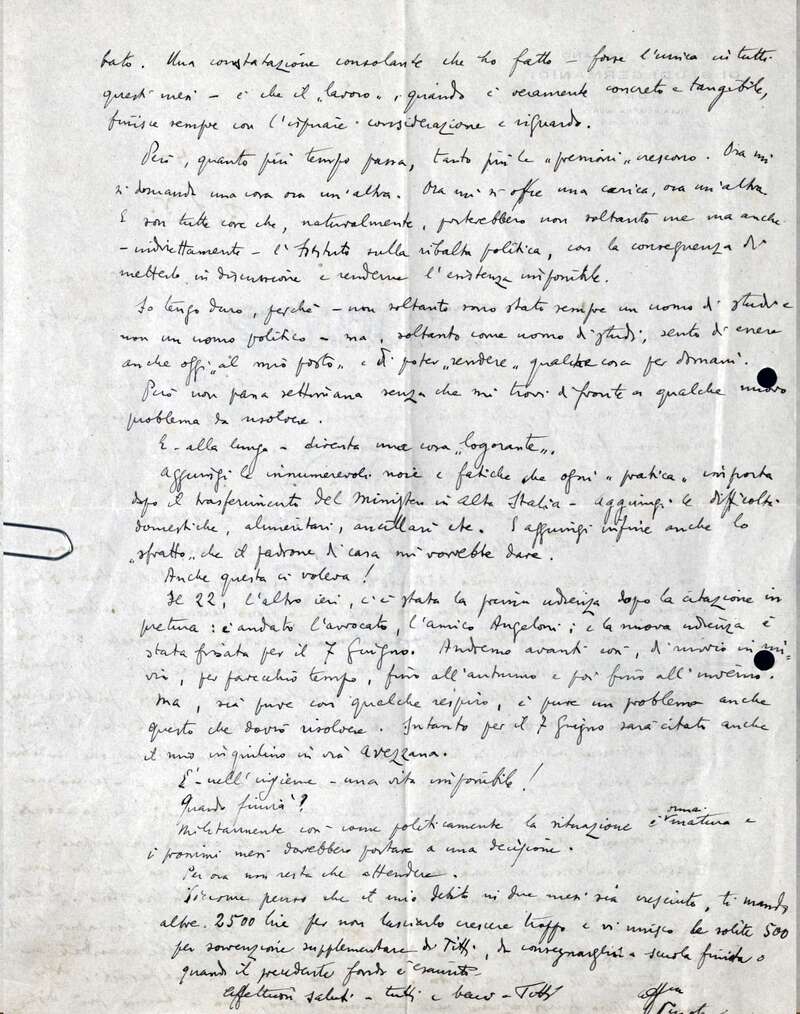 bato. Una constatazione consolante che ho fatto – forse l'unica in tutti
questi mesi – è che il „lavoro", quando è veramente concreto e tangibile,
finisce sempre con l'ispirare considerazione e riguardo.
Però, quanto più tempo passa, tanto più le „pressioni" crescono. Ora mi
si domanda una cosa ora un'altra. Ora mi si offre una carica, ora un'altra
E son tutte cose che, naturalmente, porterebbero non soltanto me ma anche
– indirettamente – l'Istituto sulla ribalta politica, con la conseguenza di
metterlo in discussione e renderne l'esistenza impossibile.
Io tengo duro, perché – non soltanto sono stato sempre un uomo di studi e
non un uomo politico – ma, soltanto come uomo di studi, sento di essere
anche oggi „al mio posto" e di poter „rendere" qualche cosa per domani.
Però non passa settimana senza che mi trovi di fronte a qualche nuovo
problema da risolvere.
E – alla lunga – diventa una cosa „logorante".
Aggiungi le innumerevoli noie e fatiche che ogni „pratica" importa
dopo il trasferimento del Ministero in alta Italia – aggiungi le difficoltà
domestiche, alimentari, ancillari etc. E aggiungi infine anche lo
„sfratto" che il padrone di casa mi vorrebbe dare.
Anche questa ci voleva!
Il 22, l'altro ieri, c'è stata la prima udienza dopo la citazione in
pretura: è andato l'avvocato, l'amico Angeloni; e la nuova udienza è
stata fissata per il 7 Giugno. Andremo avanti così, di rinvio in rin-
vio, per parecchio tempo, fino all'autunno e poi fino all'inverno.
Ma, sia pure con qualche respiro, è pure un problema anche
questo che dovrò risolvere. Intanto per il 7 Giugno sarà citato anche
il mio inquilino in via Avezzana.
È – nell'insieme – una vita impossibile!
Quando finirà?
Militarmente così come politicamente la situazione è ormai matura e
i prossimi mesi dovrebbero portare a una decisione.
Per ora non resta che attendere.
Siccome penso che il mio debito in due mesi sia cresciuto, ti mando
altre 2500 lire per non lasciarlo crescere troppo e vi unisco le solite 500
per sovvenzione supplementare di Titti, da consegnargli a scuola finita o
quando il precedente fondo è esaurito.
Affettuosi saluti – tutti e bacio – Titti